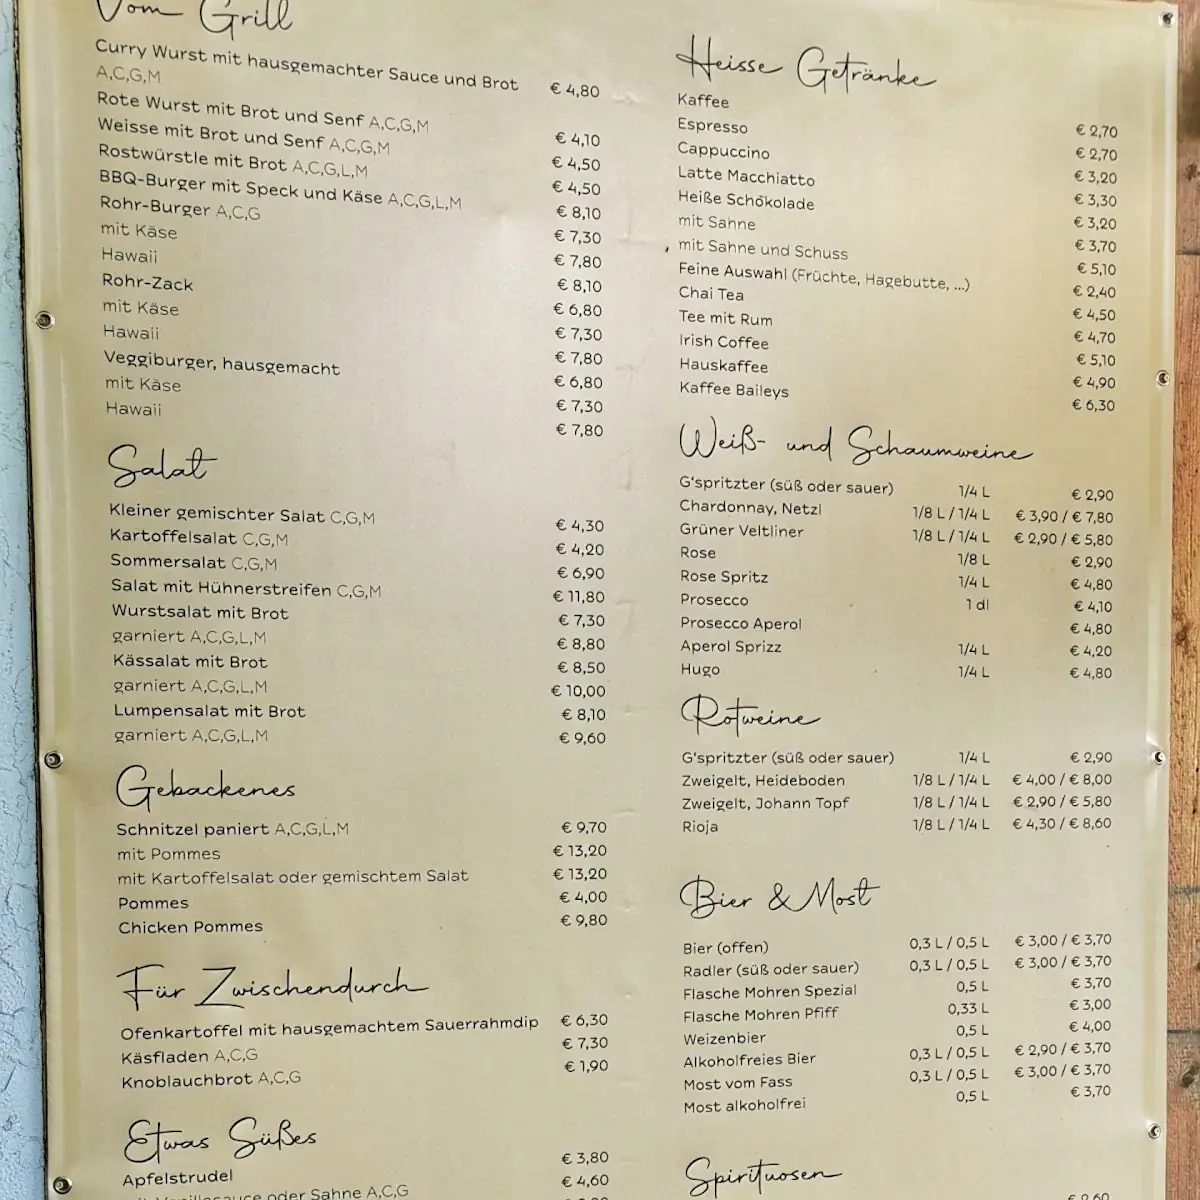 Vom Grill
Curry Wurst mit hausgemachter Sauce und Brot
A,C,G,M € 4,80
Rote Wurst mit Brot und Senf A,C,G,M € 4,10
Weisse mit Brot und Senf A,C,G,M € 4,50
Rostwürstle mit Brot A,C,G,L,M € 4,50
BBQ-Burger mit Speck und Käse A,C,G,L,M € 8,10
Rohr-Burger A,C,G € 7,30
mit Käse € 7,80
Hawaii € 8,10
Rohr-Zack € 6,80
mit Käse € 7,30
Hawaii € 7,80
Veggiburger, hausgemacht € 6,80
mit Käse € 7,30
Hawaii € 7,80
Salat
Kleiner gemischter Salat C,G,M € 4,30
Kartoffelsalat C,G,M € 4,20
Sommersalat C,G,M € 6,90
Salat mit Hühnerstreifen C,G,M € 11,80
Wurstsalat mit Brot € 7,30
garniert A,C,G,L,M € 8,80
Kässalat mit Brot € 8,50
garniert A,C,G,L,M € 10,00
Lumpensalat mit Brot € 8,10
garniert A,C,G,L,M € 9,60
Gebackenes
Schnitzel paniert A,C,G,L,M € 9,70
mit Pommes € 13,20
mit Kartoffelsalat oder gemischtem Salat € 13,20
Pommes € 4,00
Chicken Pommes € 9,80
Für Zwischendurch
Ofenkartoffel mit hausgemachtem Sauerrahmdip € 6,30
Käsfladen A,C,G € 7,30
Knoblauchbrot A,C,G € 1,90
Etwas Süßes
Apfelstrudel € 3,80
mit Vanillesauce oder Sahne A,C,G € 4,60
Heisse Getränke
Kaffee € 2,70
Espresso € 2,70
Cappuccino € 3,20
Latte Macchiatto € 3,30
Heiße Schokolade € 3,20
mit Sahne € 3,70
mit Sahne und Schuss € 5,10
Feine Auswahl (Früchte, Hagebutte, ...) € 2,40
Chai Tea € 4,50
Tee mit Rum € 4,70
Irish Coffee € 5,10
Hauskaffee € 4,90
Kaffee Baileys € 6,30
Weiß- und Schaumweine
G'spritzter (süß oder sauer) 1/4 L € 2,90
Chardonnay, Netzl 1/8 L / 1/4 L € 3,90 / € 7,80
Grüner Veltliner 1/8 L / 1/4 L € 2,90 / € 5,80
Rose 1/8 L € 2,90
Rose Spritz 1/4 L € 4,80
Prosecco 1 dl € 4,10
Prosecco Aperol € 4,80
Aperol Sprizz 1/4 L € 4,20
Hugo 1/4 L € 4,80
Rotweine
G'spritzter (süß oder sauer) 1/4 L € 2,90
Zweigelt, Heideboden 1/8 L / 1/4 L € 4,00 / € 8,00
Zweigelt, Johann Topf 1/8 L / 1/4 L € 2,90 / € 5,80
Rioja 1/8 L / 1/4 L € 4,30 / € 8,60
Bier & Most
Bier (offen) 0,3 L / 0,5 L € 3,00 / € 3,70
Radler (süß oder sauer) 0,3 L / 0,5 L € 3,00 / € 3,70
Flasche Mohren Spezial 0,5 L € 3,70
Flasche Mohren Pfiff 0,33 L € 3,00
Weizenbier 0,5 L € 4,00
Alkoholfreies Bier 0,3 L / 0,5 L € 2,90 / € 3,70
Most vom Fass 0,3 L / 0,5 L € 3,00 / € 3,70
Most alkoholfrei 0,5 L € 3,70
Spirituosen